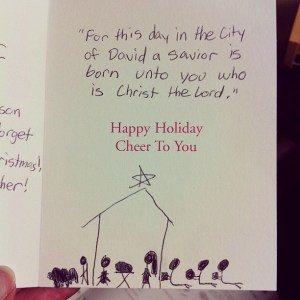 son
orget
ristmas!
her!
"For this day in the City
of David a savior is
born unto you who
is Christ the Lord."
Happy Holiday
Cheer To You